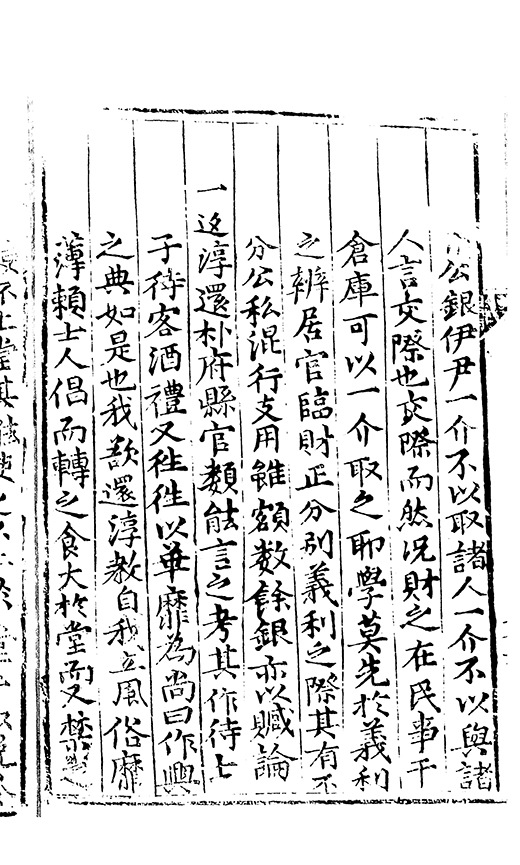 公銀伊尹一介不以取諸人一介不以與諸
人言交際也交際而然况財之在民事干
倉庫可以一介取之耶學莫先於義利
之辨居官臨財正分别義利之際其有不
分公私混行支用雖額数餘銀亦以贓論
一返淳還朴府縣官類能言之考其作待士
子待客酒禮又往往以華靡為尚曰作興
之典如是也我欲還淳敎自我立風俗靡
薄賴士人倡而轉之食大於堂而又禁